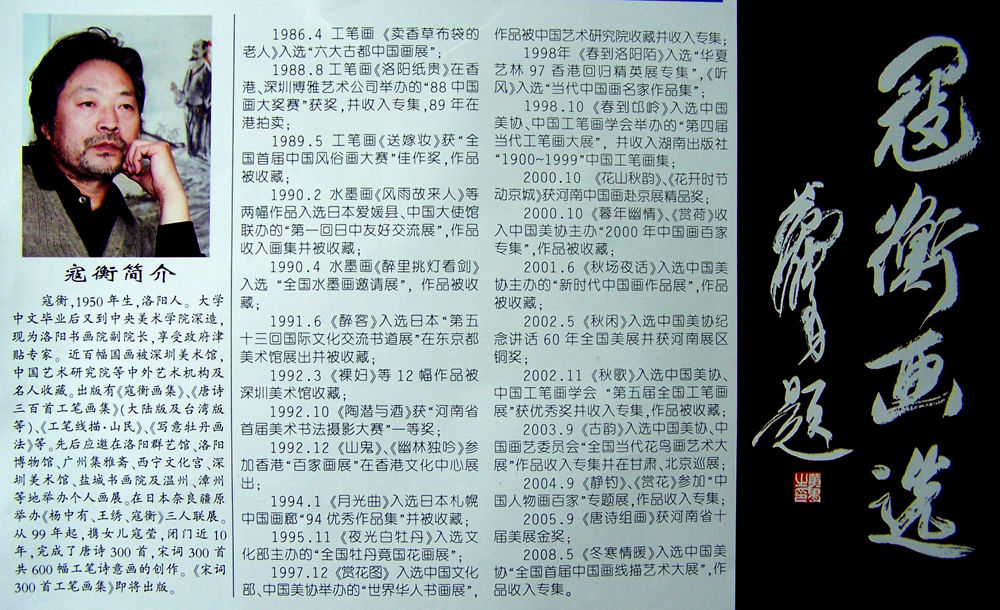 寇衡简介
寇衡,1950年生,洛阳人。大学
中文毕业后又到中央美术学院深造,
现为洛阳书画院副院长,享受政府津
贴专家。近百幅国画被深圳美术馆,
中国艺术研究院等中外艺术机构及
名人收藏。出版有《寇衡画集》、《唐诗
三百首工笔画集》(大陆版及台湾版
等)、《工笔线描·山民》、《写意牡丹画
法》等。先后应邀在洛阳群艺馆、洛阳
博物馆、广州集雅斋、西宁文化宫、深
圳美术馆、盐城书画院及温州、漳州
等地举办个人画展。在日本奈良疆原
举办《杨中有、王绣、寇衡》三人联展。
从99年起,携女儿寇莹,闭门近10
年,完成了唐诗300首,宋词300首
共600幅工笔诗意画的创作。《宋词
300首工笔画集》即将出版。
1986.4 工笔画《卖香草布袋的
老人》入选“六大古都中国画展”;
1988.8 工笔画《洛阳纸贵》在香
港、深圳博雅艺术公司举办的“88中国
画大奖赛”获奖,并收入专集,89年在
港拍卖;
1989.5 工笔画《送嫁妆》获“全
国首届中国风俗画大赛”佳作奖,作品
被收藏;
1990.2 水墨画《风雨故来人》等
两幅作品入选日本爱媛县、中国大使馆
联办的“第一回日中友好交流展”,作品
收入画集并被收藏;
1990.4 水墨画《醉里挑灯看剑》
入选“全国水墨画邀请展”,作品被收
藏;
1991.6 《醉客》入选日本“第五
十三回国际文化交流书道展”在东京都
美术馆展出并被收藏;
1992.3 《裸妇》等12幅作品被
深圳美术馆收藏;
1992.10 《陶潜与酒》获“河南省
首届美术书法摄影大赛”一等奖;
1992.12 《山鬼》、《幽林独吟》参
加香港“百家画展”在香港文化中心展
出;
1994.1 《月光曲》入选日本札幌
中国画廊“94优秀作品集”并被收藏;
1995.11 《夜光白牡丹》入选文
化部主办的“全国牡丹竟国花画展”;
1997.12 《赏花图》入选中国文化
部、中国美协举办的“世界华人书画展”,
作品被中国艺术研究院收藏并收入专集;
1998年《春到洛阳陌》入选“华夏
艺林97香港回归精英展专集”,《听
风》入选“当代中国画名家作品集”;
1998.10 《春到邙岭》入选中国
美协、中国工笔画学会举办的“第四届
当代工笔画大展”,并收入湖南出版社
“1900~1999”中国工笔画集;
2000.10 《花山秋韵》、《花开时节
动京城》获河南中国画赴京展精品奖;
2000.10 《暮年幽情》、《赏荷》收
入中国美协主办“2000年中国画百家
专集”,作品被收藏;
2001.6 《秋场夜话》入选中国美
协主办的“新时代中国画作品展”,作品
被收藏;
2002.5 《秋闲》入选中国美协纪
念讲话60年全国美展并获河南展区
铜奖;
2002.11 《秋歌》入选中国美协、
中国工笔画学会“第五届全国工笔画
展”获优秀奖并收入专集,作品被收藏;
2003.9 《古韵》入选中国美协、中
国画艺委员会“全国当代花鸟画艺术大
展”作品收入专集并在甘肃、北京巡展;
2004.9 《静钓》、《赏花》参加“中
国人物画百家”专题展,作品收入专集;
2005.9 《唐诗组画》获河南省十
届美展金奖;
2008.5 《冬寒情暖》入选中国美
协“全国首届中国画线描艺术大展”,作
品收入专集。
寇衡画选
题